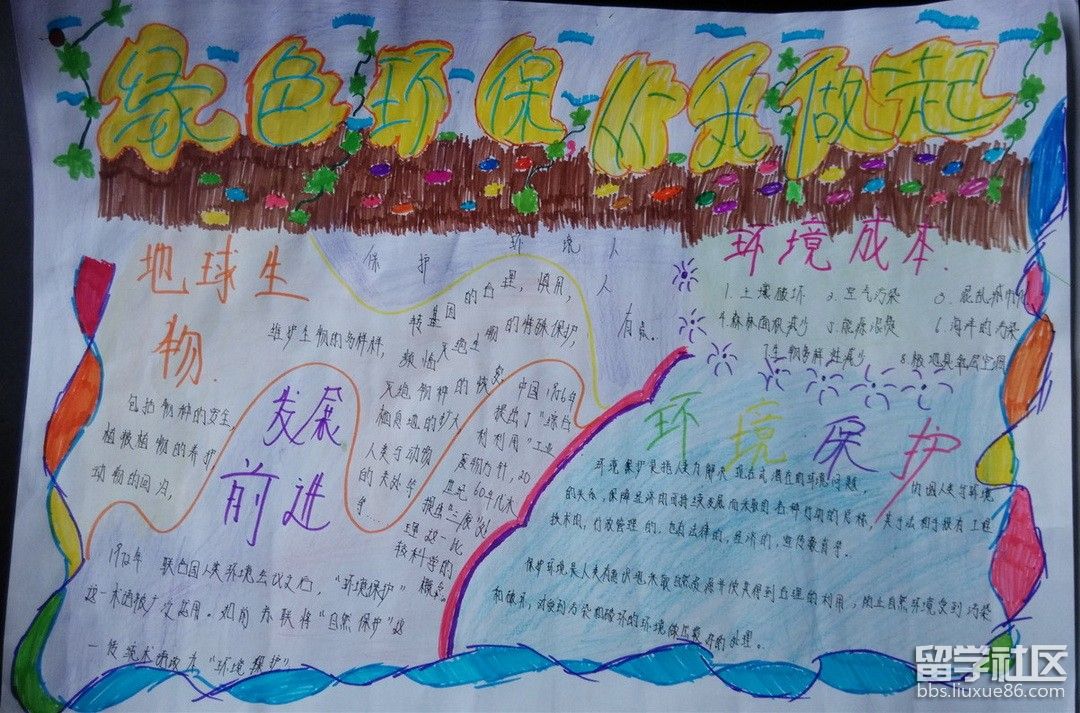 绿色环保 从我做起
地球生
物
保护 环境人人
有点。
维护生物的多样性,
转基因的合理,慎用,
濒临灭绝生物的特殊保护,
灭绝物种的恢复,
栖息地的扩大
人类与动物
的关系等
等……
包括物种的安全,
植被植物的养护
动物的回归,
发展
前进
中国1956年
提出了"综合
利用"工业
废物方针,20
世纪60年代末
提出"三废"处
理这一比
较科学的
概念。
1972年 联合国人类环境会议之后,"环境保护"
这一术语被广泛采用。如前苏联将"自然保护"这
一传统术语改为"环境保护"
环境成本.
1.土壤破坏 2.空气污染
4.森林面积减少 5.能源浪费 6.海洋的污染
7.生物多样性减少
环境保护
环境保护是指人类为解决现在或潜在的环境问题,
的关系,保障经济的可持续发展而采取的各种行动的总称。其方法和手段有工程
技术的,行政管理的,也有法律的,经济的,宣传教育等。
保护环境是人类有意识地
自然资源并使其得到合理的利用,防止自然环境受到污染
和破坏;对受到污染和破坏的环境做
好的处理。
留学社区
bbs.liuxue86.com